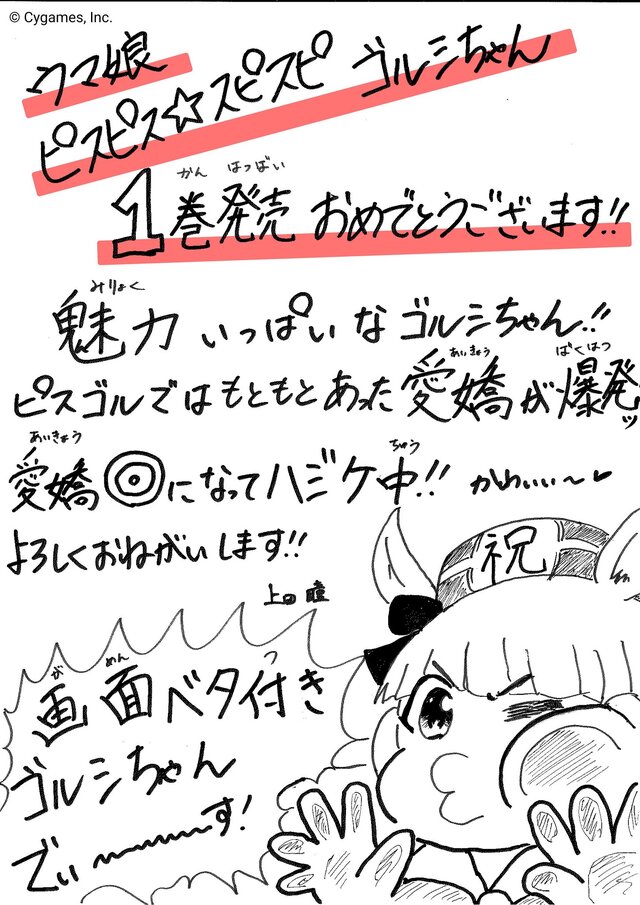 © Cygames, Inc.
ウマ娘
ピスピス☆スピスピ ゴルシちゃん
かん はつばい
1巻発売 おめでとうございます!!
みりょく
魅力いっぱいなゴルシちゃん!!
あいきょう ばくはつ
ピスゴルではもともとあった愛嬌が爆発ッ
あいきょう ちゅう
愛嬌◎になってハジケ中!! かわいい〜♥
よろしくおねがいします!!
上田 瞳
祝
がめん つ
画面ベタ付き
ゴルシちゃん
でぃ〜〜〜す!